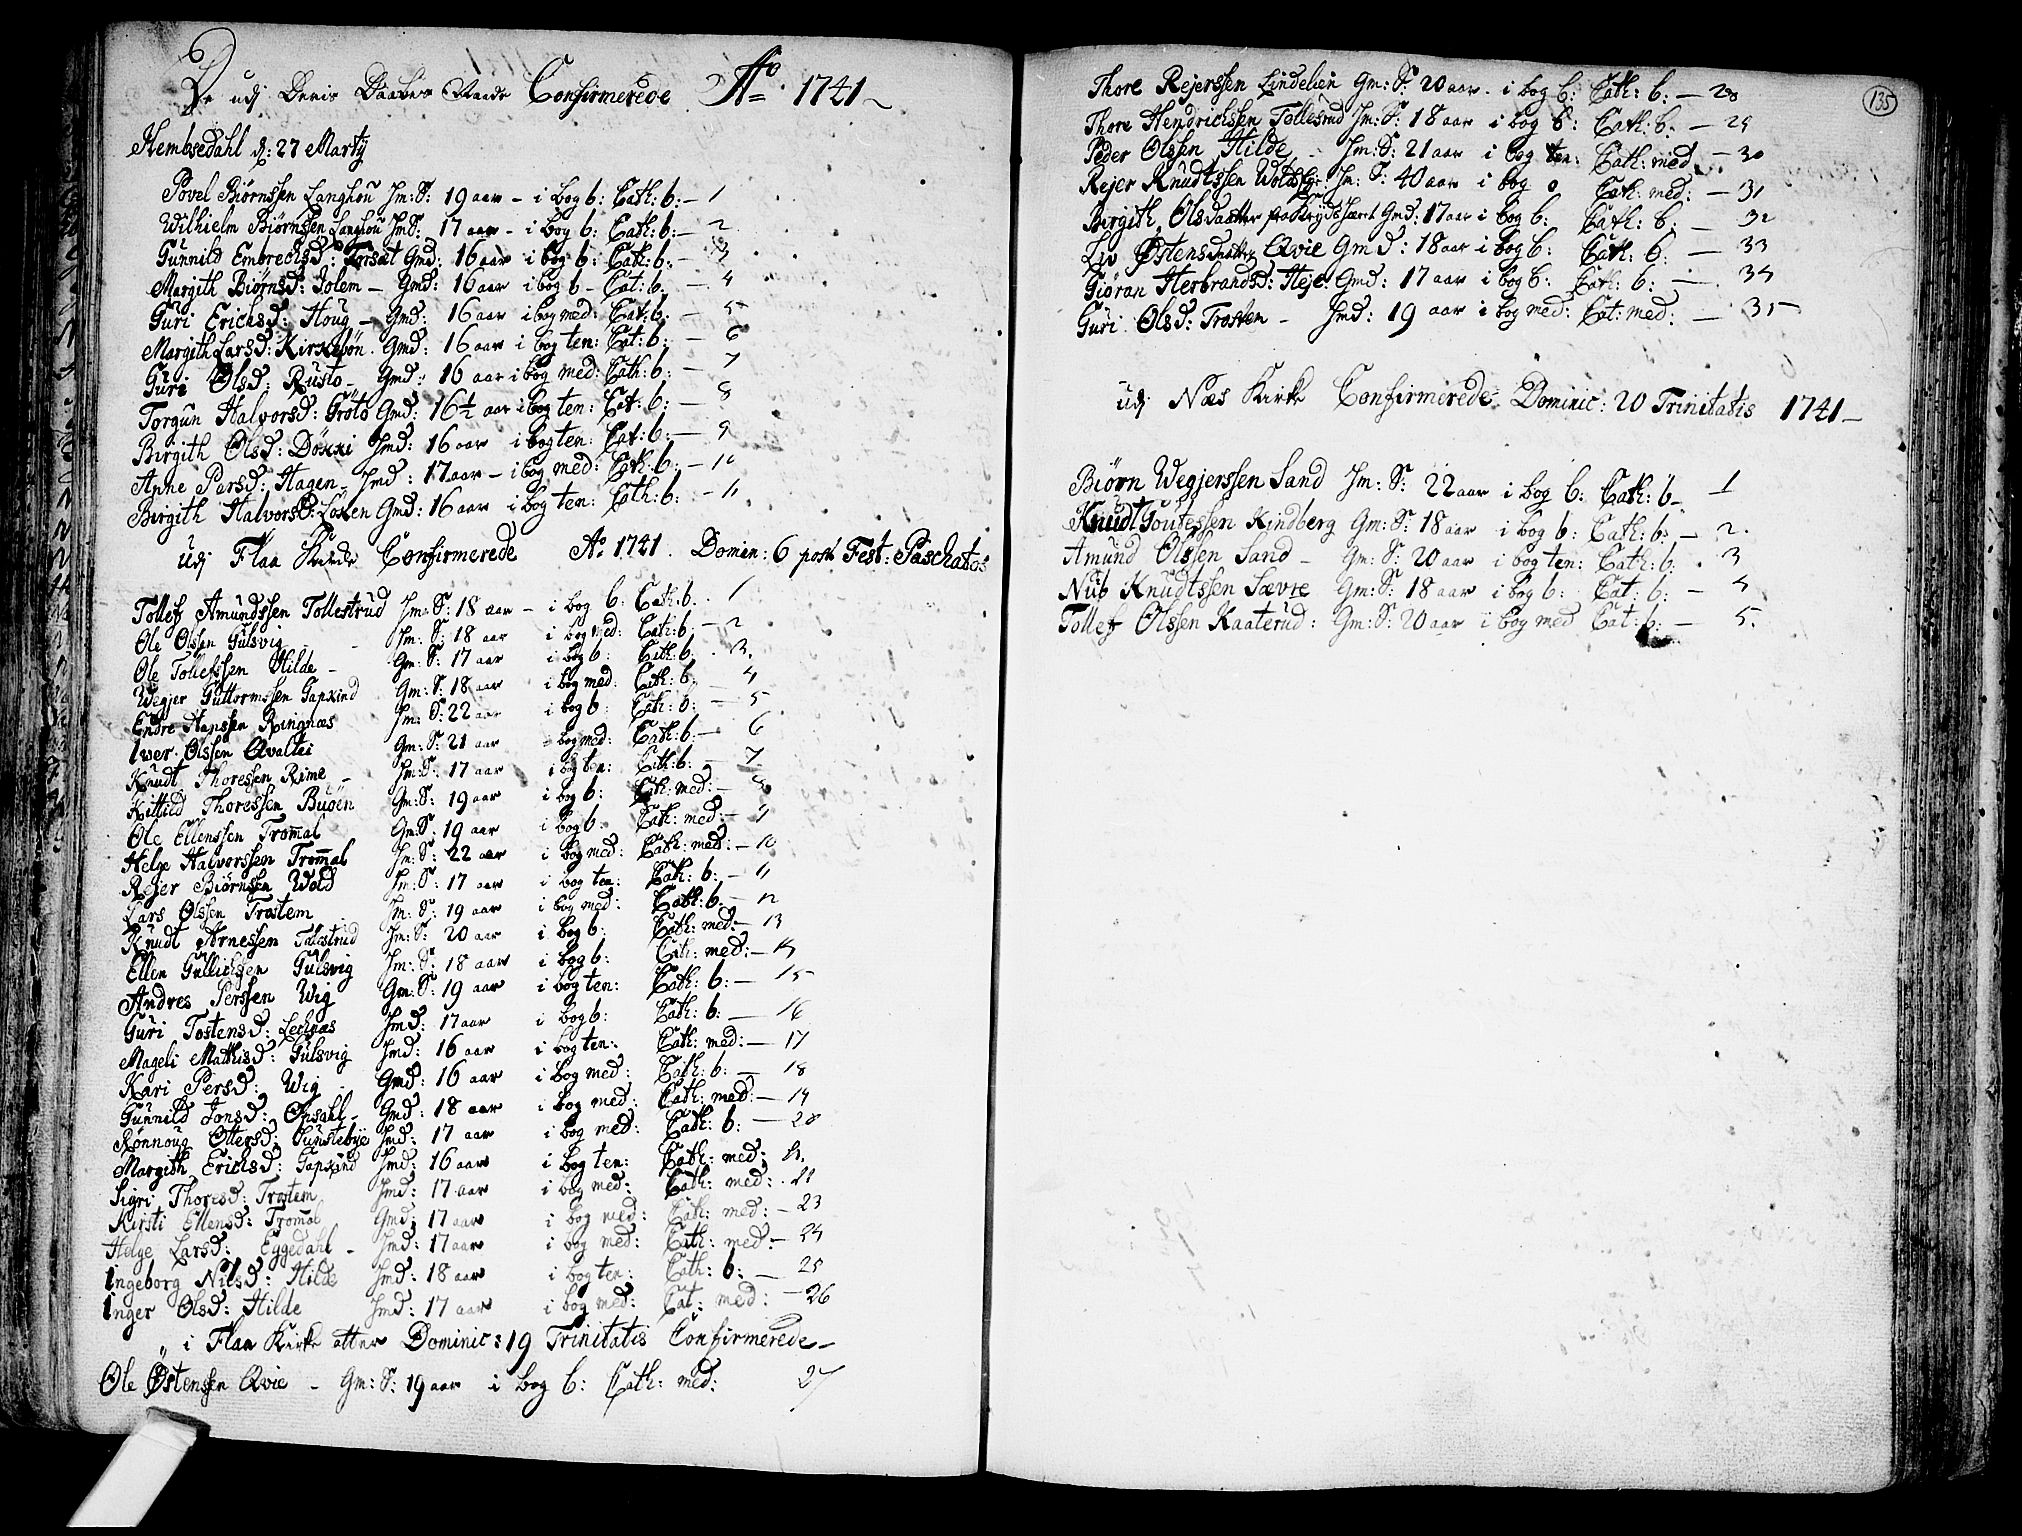 De udj Deris Daabes Naade Confirmerede A° 1741
Hembsedahl d: 27 Martij
Povel Biørnssen Langhou Jm: S: 19 aar - i bog b: Cath: b: - 1
Wilhielm Biørnssen Langhou Jm: S: 17 aar - i bog b: Cath: b: - 2
Gunnild Embrechsd: Gmd: 16 aar i bog b: Cath: b: - 3
Margith Biørnsd: Jolem - Gmd: 16 aar i bog b - Cat: b: - 4
Guri Erichsd: Houg - Gmd: 16 aar i bog med: Cat: b: - 5
Margith Larsd: Kirkebøn. Gmd: 16 aar i bog ten: Cat: b: - 6
Guri Olsd: Rusto - Gmd: 16 aar i bog med: Cath: b: - 7
Torgun Halvorsd: Grøto Gmd: 16½ aar i bog ten: Cat: b: - 8
Birgith Olsd: Døkki Jmd: 16 aar i bog ten: Cat: b: - 9
Anne Parsd: Hagen - Jmd: 17 aar - i bog med: Cath: b: - 10
Birgith Halvorsd: Løken Gmd: 16 aar i bog ten: Cath: b: - 11
Udj Flaa Kirke Confirmerede A° 1741. Domin: 6 post Fest: Paschatos
Tollef Amundssen Tollefsrud Jm: S: 18 aar - i bog b: Cath: b: 1
Ole Olssen Gulsvig Jm: S: 18 aar i bog med: Cath: b: - 2
Ole Tollefssen Hilde - Gm: S: 17 aar i bog b: Cath: b: 3.
Wegjer Guttormssen Gapkind Gm: S: 18 aar i bog med: Cath: b: - 4
Endre Hanssen Ringnæs Jm: S: 22 aar i bog b: Cath: b: - 5
Iver Olssen Qvaltei Gm: S: 21 aar - bog med: Cath: b: - 6
Knudt Thoressen Rime - Jm: S: 17 aar i bog ten: Cath: b: - 7
Kittild Thoressen Bugøn Gm: S: 19 aar i bog b: Cath: med: - 8
Ole Ellenssen Trommal Gm: S: 19 aar i bog b: Cath: med: - 9
Helge Halvorssen Trommal Jm: S: 22 aar i bog med: Cath: med: - 10
Rejer Biørnssen Wold Jm: S: 17 aar i bog ten: Cath: b: - 11
Lars Olssen Trostem Jm: S: 19 aar i bog med: Cath: b: - 12
Knudt Arnessen Tollefsrud Jm: S: 20 aar i bog b: Cath: med: - 13
Ellen Gullichsen Gulsvig Jm: S: 18 aar i bog b: Cath: med: - 14
Andres Perssen Wig Gm: S: 19 aar i bog ten: Cath: b: - 15
Guri Tostensd: Jmd: 17 aar i bog b: Cath: b: - 16
Mageli Mathisd: Gulsvig Jmd: 16 aar i bog ten: Cath: med: - 17
Kari Persd: Wig - Gmd: 16 aar i bog med: Cath: b: - 18
Gunnild Jonsd: Opsahl - Gmd: 18 aar i bog med: Cath: med: - 19
Rønnoug Ottersd: Gunstebye Jmd: 17 aar i bog med: Cath: b: - 20
Margith Erichsd: Gapkind Jmd: 16 aar i bog ten: Cath: med: 21.
Sigri Thoresd: Trostem Jmd: 17 aar i bog med: Cath: med: 22
Kirsti Ellensd: Trommal Gmd: 17 aar i bog med: Cath: med: - 23
Helge Larsd: Eggedahl - Jmd: 17 aar i bog med: Cath: med: - 24
Ingeborg Nilsd: Hilde Jmd: 18 aar i bog ten: Cath: b: - 25
Inger Olsd: Hilde Jmd: 17 aar i bog med: Cat: med: - 26
i Flaa Kirke atter Dominic: 19 Trinitatis Confirmerede -
Ole Østenssen Qvie - Gm: S: 19 aar i bog b: Cath: med: 27
135
Thore Rejerssen Lindelien Gm: S: 20 aar - i bog b: Cath: b: - 28
Thore Hendrichsen Tollefsrud Jm: S: 18 aar i bog b: Cath: b: - 29
Peder Olssen Hilde - Jm: S: 21 aar i bog ten: Cath: med - 30
Rejer Knudtssen Jm: S: 40 aar i bog o Cath: med: - 31
Birgith Olsdaatter Gmd: 17 aar i bog b: Cath: b: - 32
Liv Østensdaatter Qvie Gmd: 18 aar i bog b: Cath: b: - 33
Giøran Herbrandsd: Heje Gmd: 17 aar i bog b: Cath: b: - 34
Guri Olsd: Trostem - Jmd: 19 aar i bog med: Cat: med: - 35
udj Næs Kirke Confirmerede Dominic: 20 Trinitatis 1741 -
Biørn Wegjerssen Sand Jm: S: 22 aar i bog b: Cath: b - 1
Knudt Goutessen Kindberg Gm: S: 18 aar i bog b: Cath: b: - 2.
Amund Olssen Sand - Gm: S: 20 aar i bog ten: Cath: b: 3
Nub Knudtssen Sævre Gm: S: 18 aar i bog b: Cat: b: - 4
Tollef Olssen Kaaterud: Gm: S: 20 aar i bog med Cat: b: - 5.